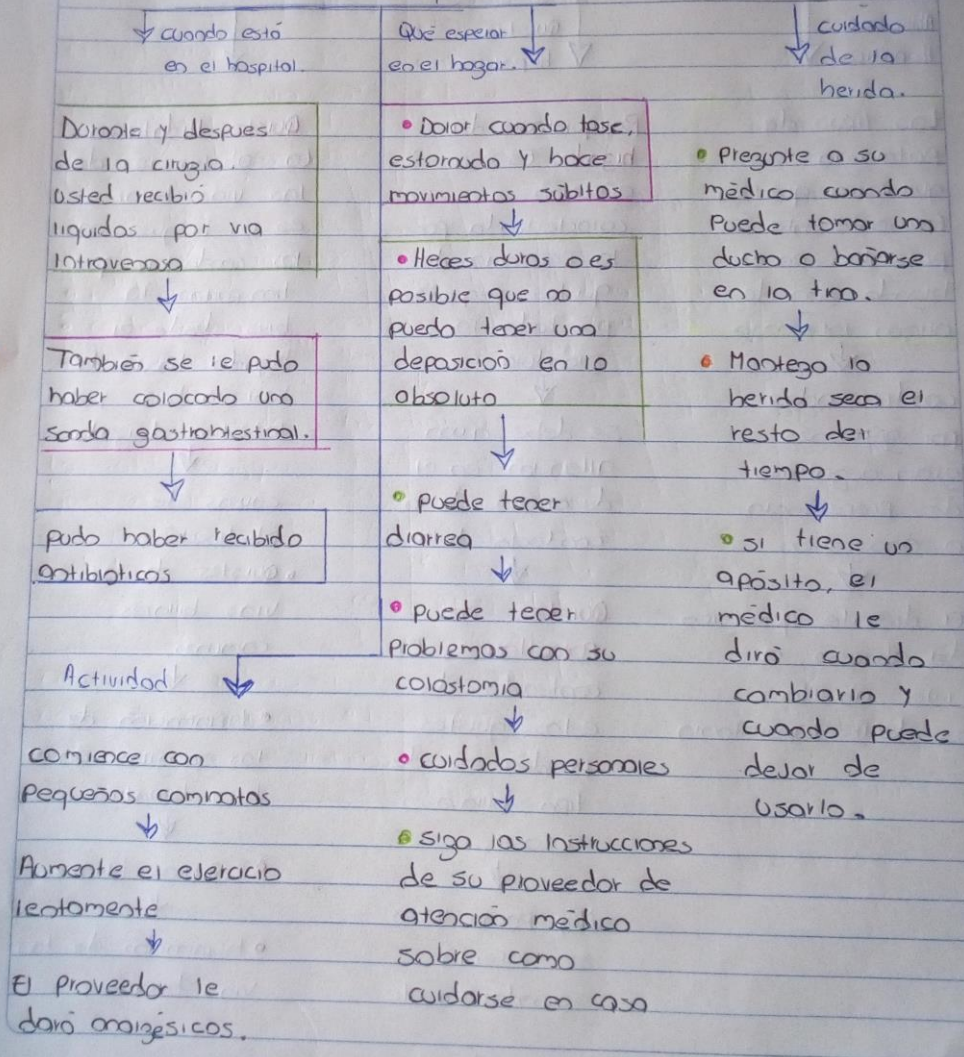 cuando está
en el hospital.
Durante y despues
de la cirugía.
usted recibió
liquidos por via
Intravenosa
También se le pudo
haber colocado una
sonda gastrointestinal.
pudo haber recibido
antibióticos
Actividad
comience con
Pequeños caminatas
Aumente el ejercicio
lentamente
El Proveedor le
dará analgésicos.
Qué esperar
en el hogar.
• Dolor cuando tose,
estornudo y hace
movimientos súbitos
• Heces duras o es
posible que no
puedo tener una
deposición en lo
absoluto
• puede tener
diarrea
• puede tener
Problemas con su
colostomia
• cuidados personales
• siga las Instrucciones
de su proveedor de
atención médico
sobre como
cuidarse en casa
cuidado
de la
herida.
• Pregunte a su
médico cuando
Puede tomar una
ducha o bañarse
en la tina.
• Mantega la
herida seca el
resto del
tiempo.
• si tiene un
apósito, el
médico le
dirá cuando
cambiarlo y
cuando puede
dejar de
usarlo.